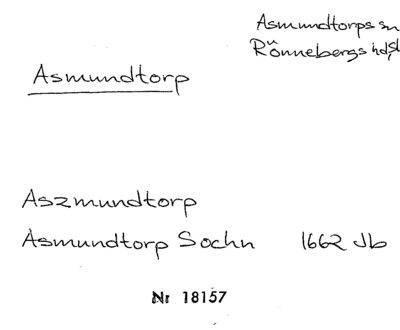 Asmundtorps sn
Rönnebergs hd
Asmundtorp
Aszmundtorp
Asmundtorp Sochn 1662 Jb
Nr 18157